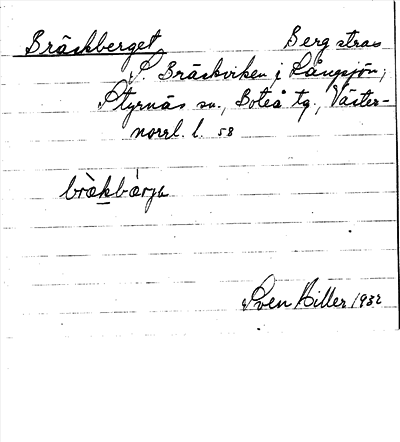 Bräskberget Berg strax
S. Bräskviken i Långsjön,
Styrnäs sn., Boteå tg., Väster-
norrl. l. 58
bràkbárja
Sven Hiller 1932